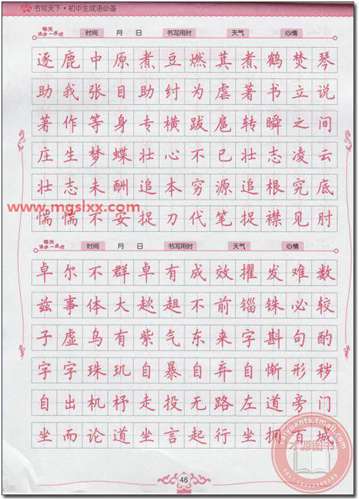 书写天下·初中生成语必备
每天进步一点点 时间 月 日 书写用时 天气 心情
逐鹿中原煮豆燃萁煮鹤焚琴
助我张目助纣为虐著书立说
著作等身专横跋扈转瞬之间
庄生梦蝶壮心不已壮志凌云
壮志未酬追本穷源追根究底
惴惴不安捉刀代笔捉襟见肘
www.mgslxx.com
每天进步一点点 时间 月 日 书写用时 天气 心情
卓尔不群卓有成效擢发难数
兹事体大趑趄不前锱铢必较
子虚乌有紫气东来字斟句酌
字字珠玑自暴自弃自惭形秽
自出机杼走投无路左道旁门
坐而论道坐言起行坐拥百城
46